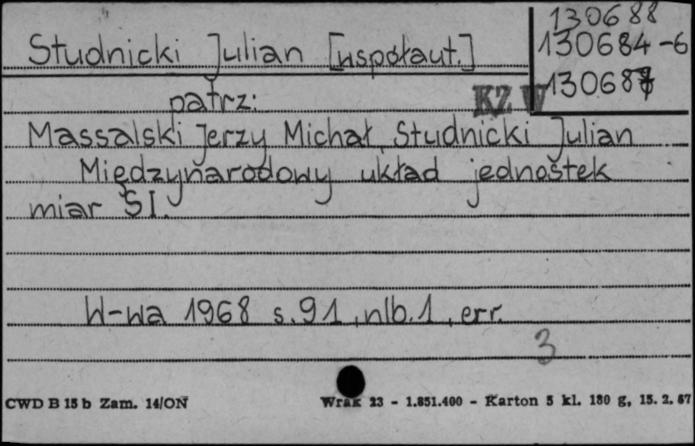 130688
Studnicki Julian [współaut.] 130684-6
130687
patrz: KZ W
Massalski Jerzy Michał, Studnicki Julian
Międzynarodowy układ jednostek
miar SI.
W-wa 1968 s.91, nlb.1, err.
3
CWD B 15 b Zam. 14/ON Wrak 23 - 1.851.400 - Karton 5 kl. 180 g, 15. 2. 67